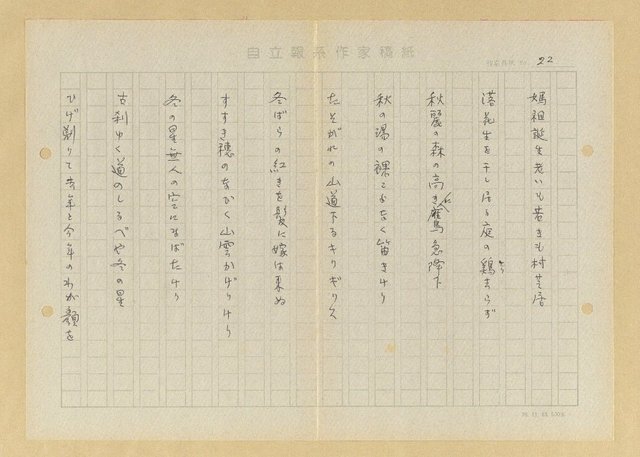 自立報系作家稿紙
22
媽祖誕生老いも若きも村芝居
落花生を干し居る庭の鶏去らず
秋麗の森の高き鷹急降下
秋の湯の裸こよなく笛きけり
たそがれの山道下るキリギリス
冬ばらの紅きを髪に嫁は来ぬ
すすき穂のなかく山雲かげりけり
冬の星無人の空にまばたけり
古刹ゆく道のしるべや冬の星
ひげ剃りて去年と今年のわが顔を